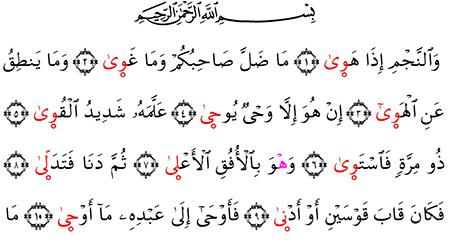 بِسْمِ اللَّهِ الرَّحْمَٰنِ الرَّحِيمِ
وَالنَّجْمِ إِذَا هَوِىٰ ﴿١﴾ مَا ضَلَّ صَاحِبُكُمْ وَمَا غَوِىٰ ﴿٢﴾ وَمَا يَنطِقُ
عَنِ الْهَوِىٰٓ ﴿٣﴾ إِنْ هُوَ إِلَّا وَحْيٌ يُوحِىٰ ﴿٤﴾ عَلَّمَهُۥ شَدِيدُ الْقُوِىٰ ﴿٥﴾
ذُو مِرَّةٍ فَاسْتَوِىٰ ﴿٦﴾ وَهْوَ بِالْأُفُقِ الْأَعْلِىٰ ﴿٧﴾ ثُمَّ دَنَا فَتَدَلِّىٰ ﴿٨﴾
فَكَانَ قَابَ قَوْسَيْنِ أَوْ أَدْنِىٰ ﴿٩﴾ فَأَوْحَىٰٓ إِلَىٰ عَبْدِهِۦ مَآ أَوْحِىٰ ﴿١٠﴾ مَا